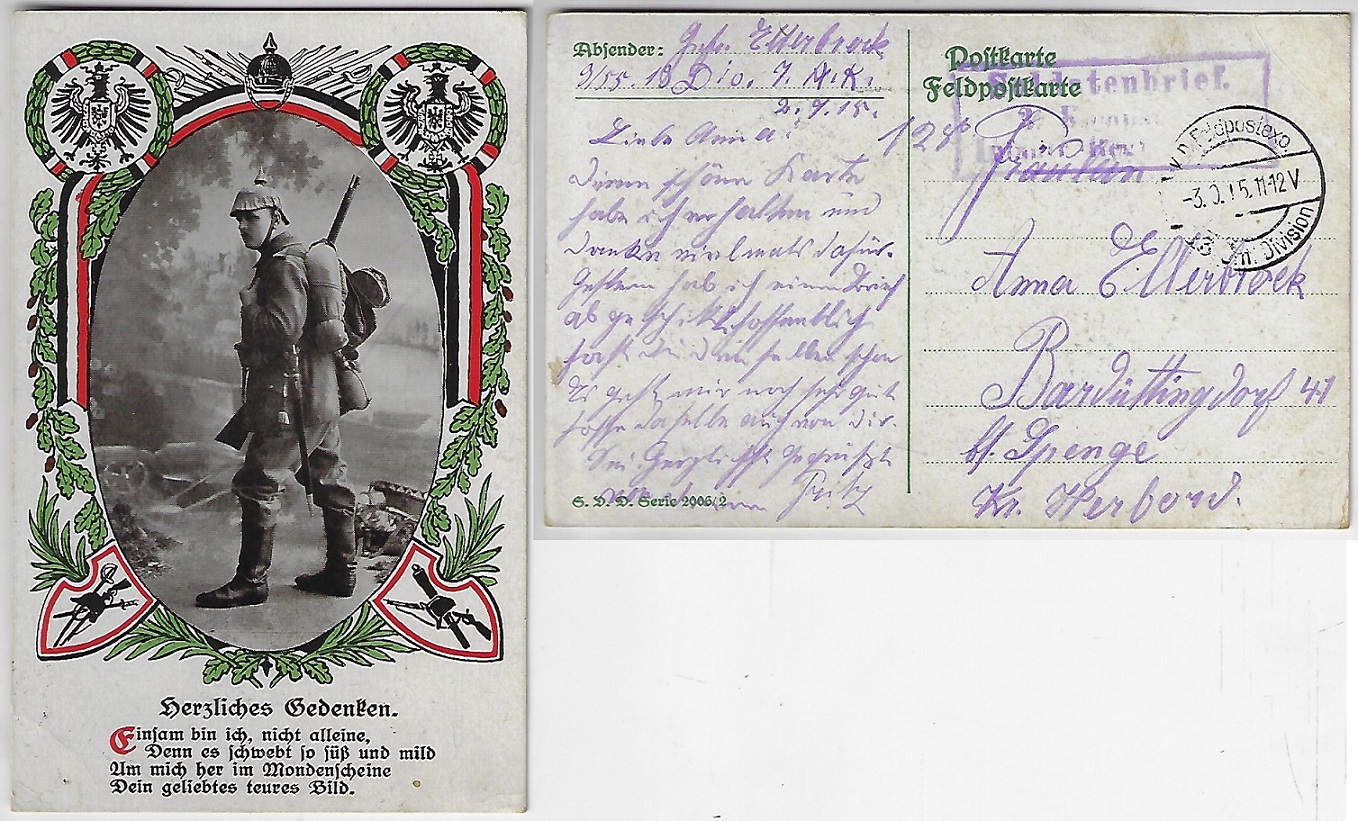 Herzliches Gedenken.
Einsam bin ich, nicht alleine,
Denn es schwebt so süß und mild
Um mich her im Mondenscheine
Dein geliebtes teures Bild.
Absender: Gefr. Ellerbrock
9/55. 13 Div. 7. A.K.
2.9.15.
Liebe Anna!
Deine schöne Karte
habe ich erhalten und
danke vielmals dafür.
Gestern hab ich einen Brief
abgeschikt hoffentlich
hast du denselben schon
Es geht mir noch sehr gut
hoffe dasselbe auch von dir.
Sei Herzlichst gegrüßt
von Fritz
S. V. D. Serie 2906/2
Postkarte
Feldpostkarte
Soldatenbrief.
K.D. Feldpostexp.
-3.9.15.11-12V
13. Inf. Division
Fräulein
Anna Ellerbrock
Bardüttingdorf 41
b/. Spenge
Kr. Herford.